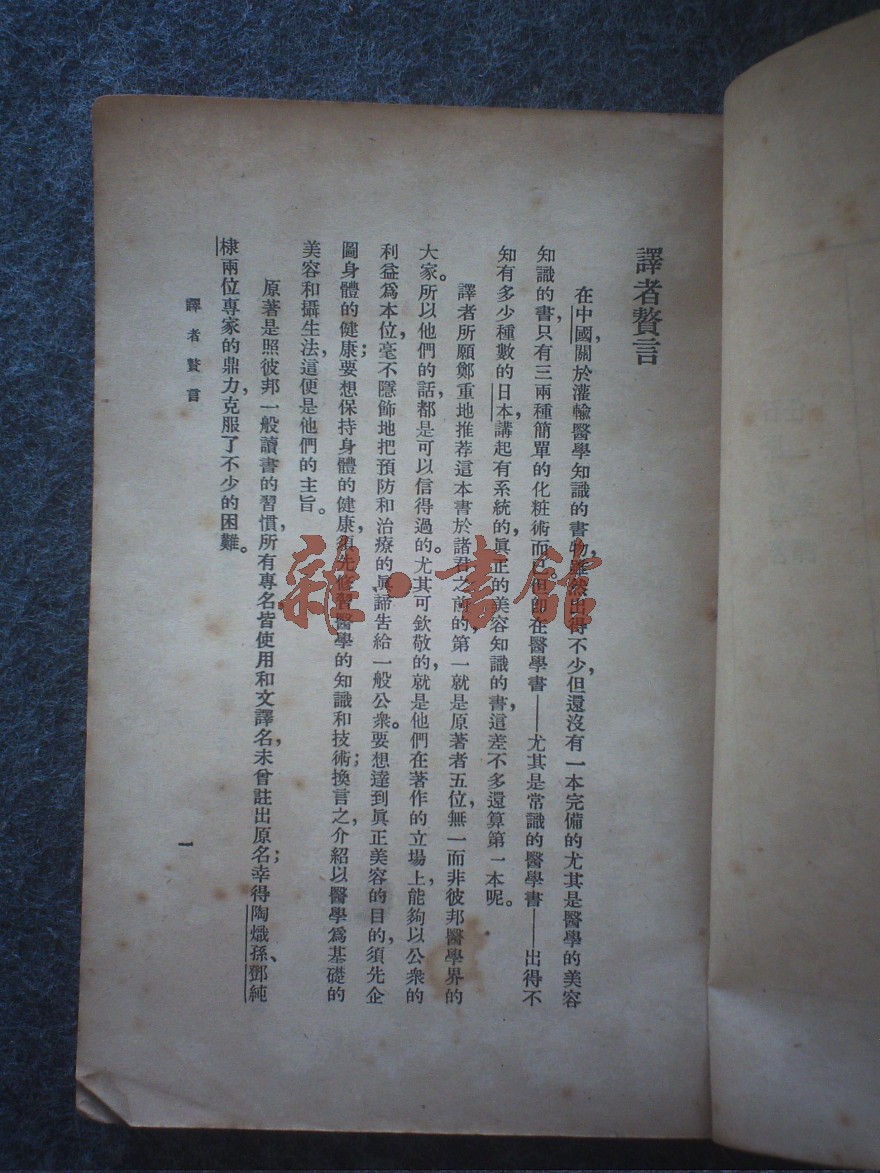 譯者贅言
在中國，關於灌輸醫學知識的書物，雖然出得不少，但還沒有一本完備的尤其是醫學的美容
知識的書，只有三兩種簡單的化粧術而已。但卽在醫學書——尤其是常識的醫學書——出得不
知有多少種數的日本，講起有系統的，眞正的美容知識的書，這差不多還算第一本呢。
譯者所願鄭重地推荐這本書於諸君之前的，第一就是原著者五位，無一而非彼邦醫學界的
大家。所以他們的話，都是可以信得過的。尤其可欽敬的，就是他們在著作的立場上，能夠以公衆的
利益爲本位，毫不隱飾地把預防和治療的眞諦告給一般公衆。要想達到眞正美容的目的，須先企
圖身體的健康；要想保持身體的健康，須先修習醫學的知識和技術；換言之，介紹以醫學爲基礎的
美容和攝生法，這便是他們的主旨。
原著是照彼邦一般讀書的習慣，所有專名，皆使用和文譯名，未曾註出原名；幸得陶熾孫、鄧純
棣兩位專家的鼎力，克服了不少的困難。
譯者贅言
一
雜·書館